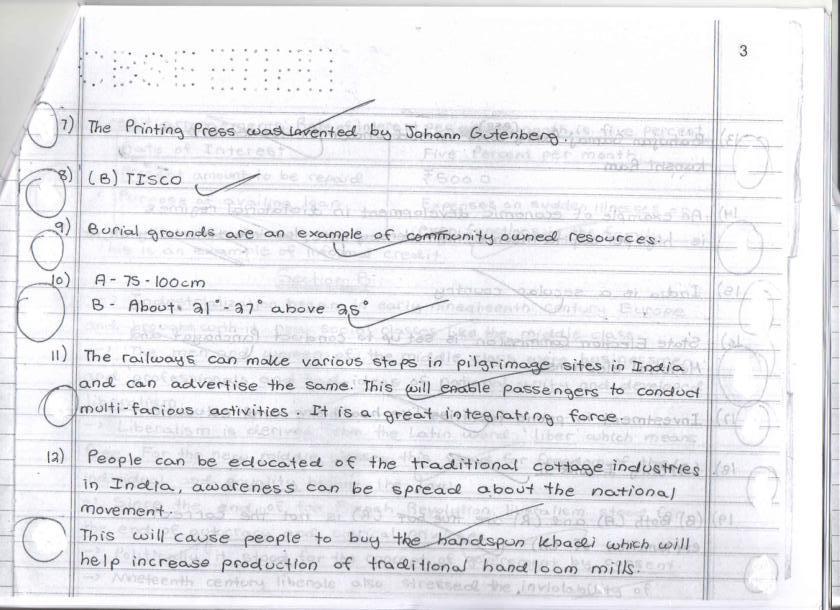 3
7) The Printing Press was invented by Johann Gutenberg.
8) (B) TISCO
9) Burial grounds are an example of community owned resources.
10) A - 75 - 100cm
B - About 21° - 27° above 25°
11) The railways can make various stops in pilgrimage sites in India
and can advertise the same. This will enable passengers to conduct
multi-farious activities. It is a great integrating force.
12) People can be educated of the traditional cottage industries
in India, awareness can be spread about the national
movement.
This will cause people to buy the handspun khadi which will
help increase production of traditional handloom mills.